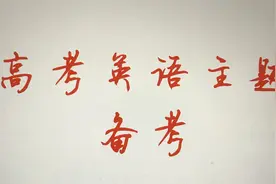 高考英语主题
备考